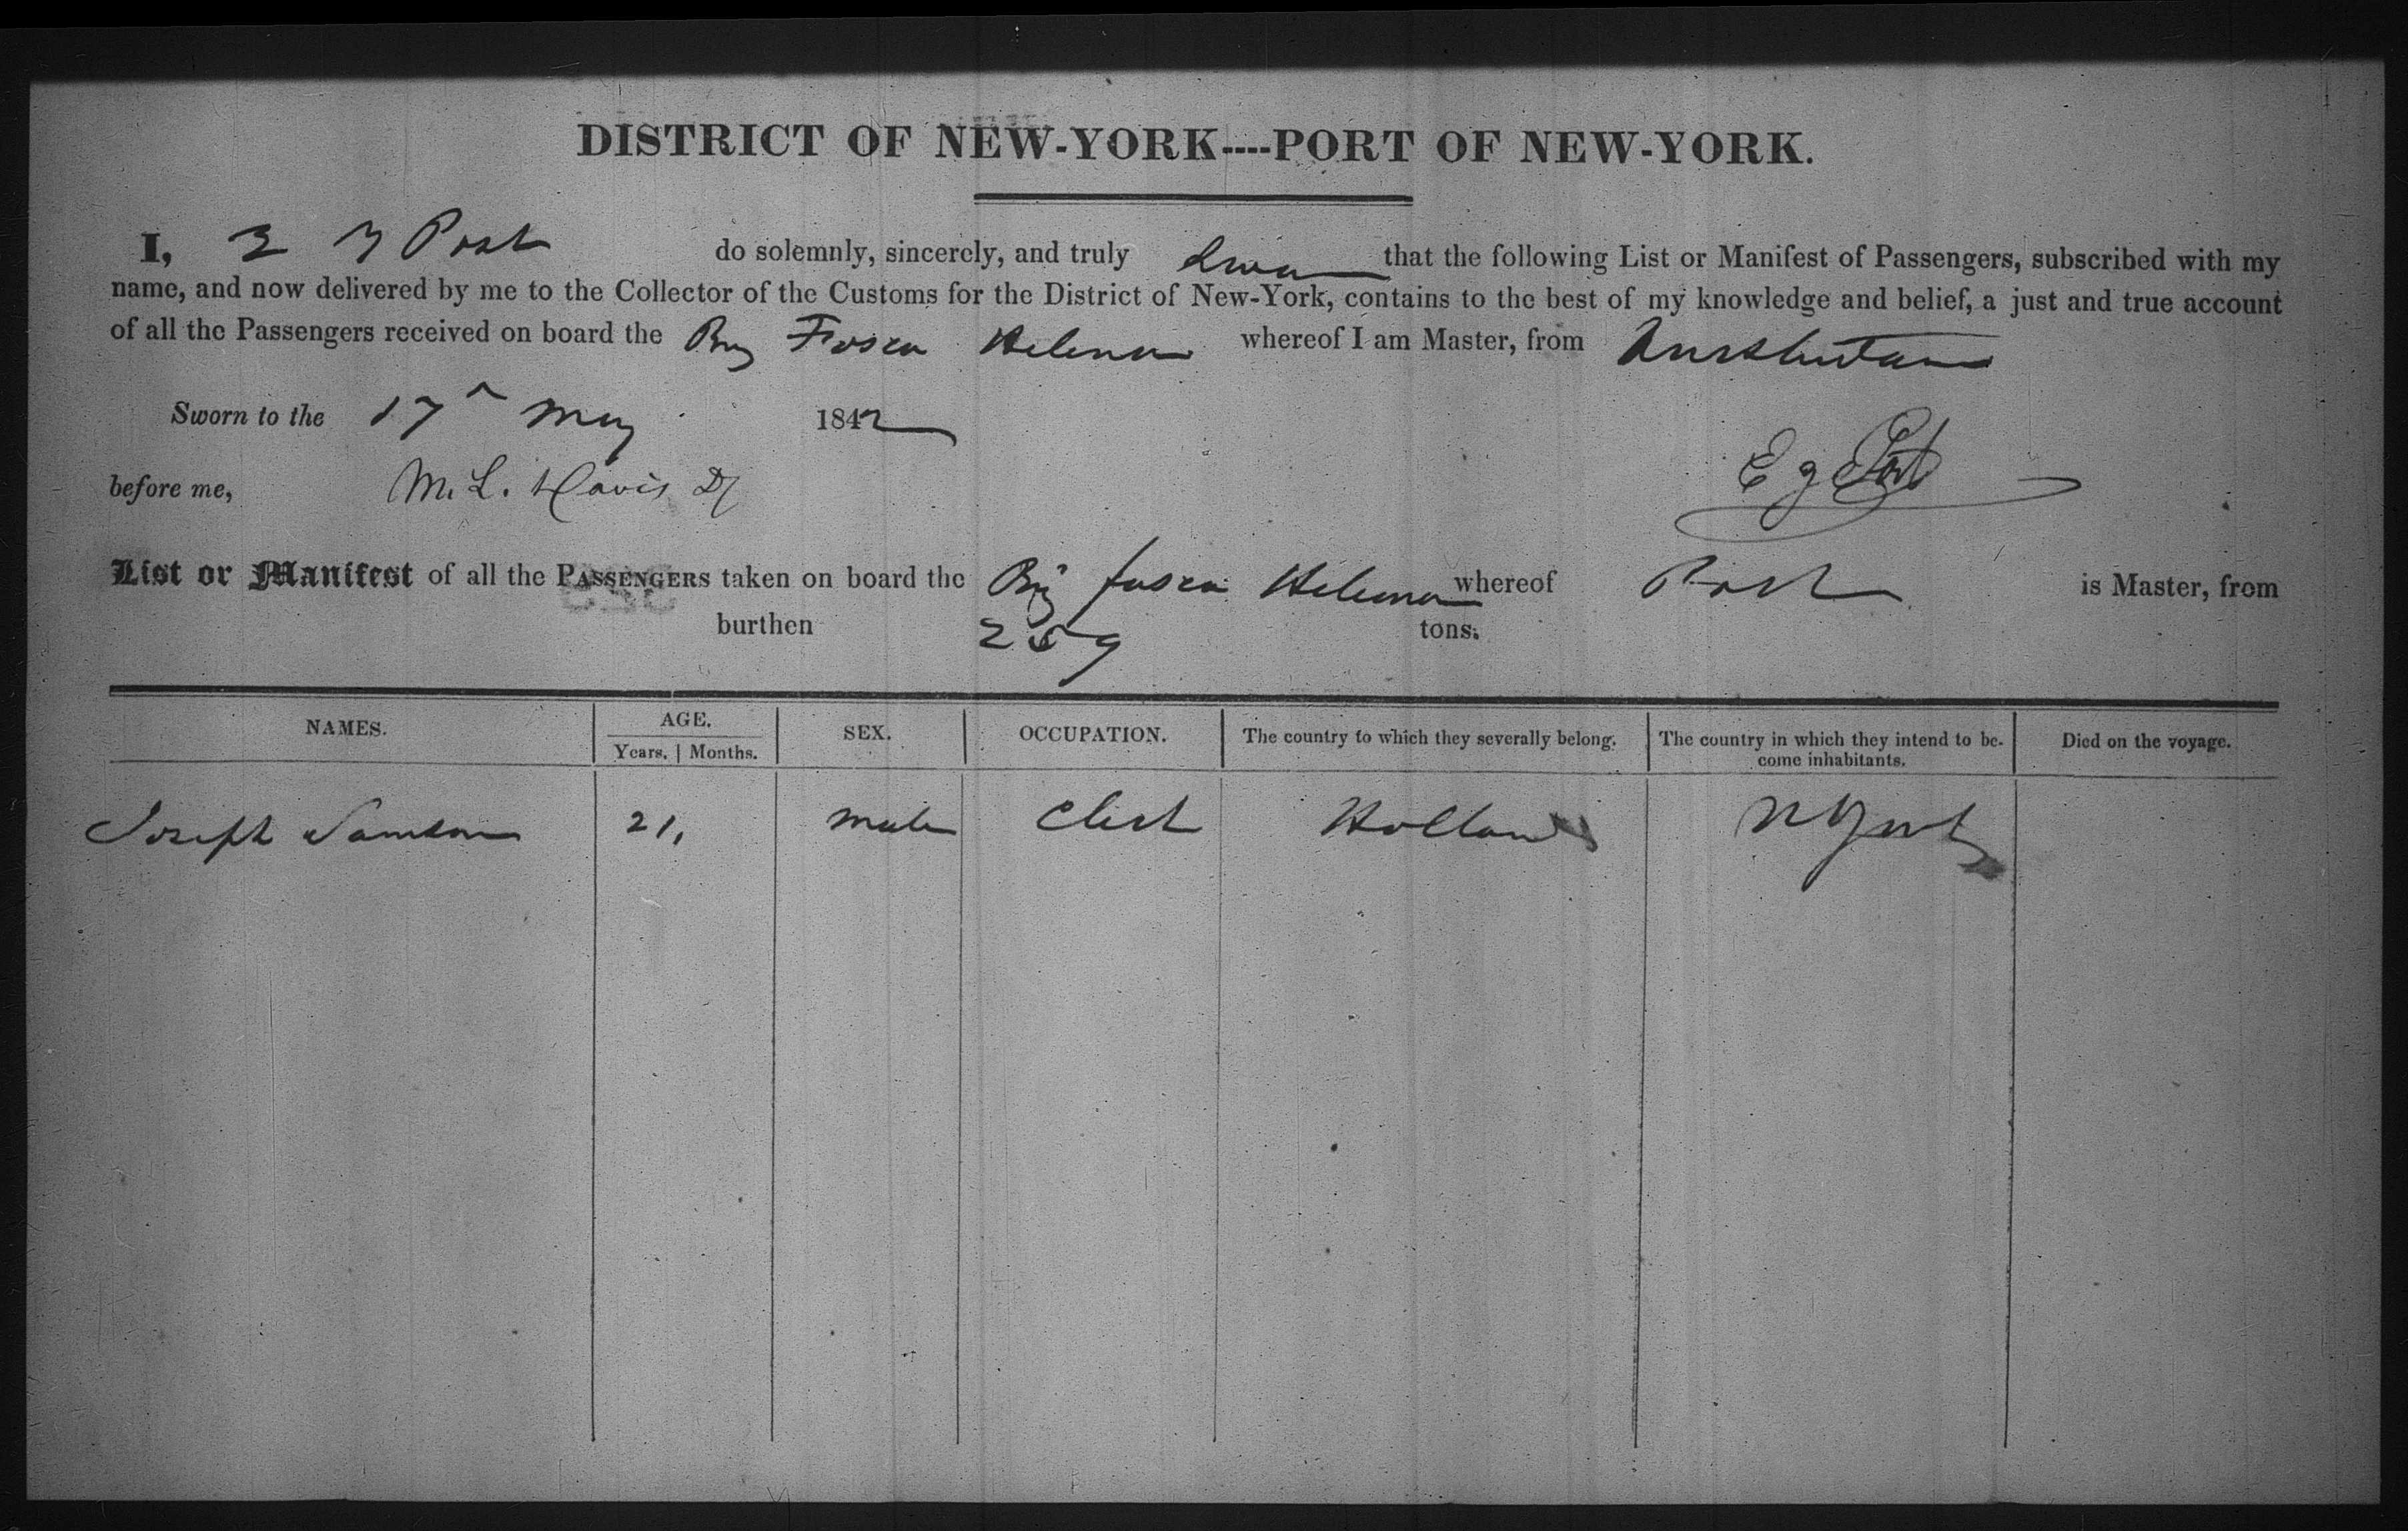 DISTRICT OF NEW-YORK----PORT OF NEW-YORK.
I, E G Post do solemnly, sincerely, and truly swear that the following List or Manifest of Passengers, subscribed with my
name, and now delivered by me to the Collector of the Customs for the District of New-York, contains to the best of my knowledge and belief, a just and true account
of all the Passengers received on board the Brig Fosca Helena whereof I am Master, from Amsterdam
Sworn to the 17th May 1842
before me, M. L. Davis Dy
E G Post
List or Manifest of all the PASSENGERS taken on board the Brig Fosca Helena whereof Post is Master, from
burthen 259 tons.
NAMES. AGE. SEX. OCCUPATION. The country to which they severally belong. The country in which they intend to be- Died on the voyage.
Years. | Months. come inhabitants.
Joseph 21, male Clerk Holland N York